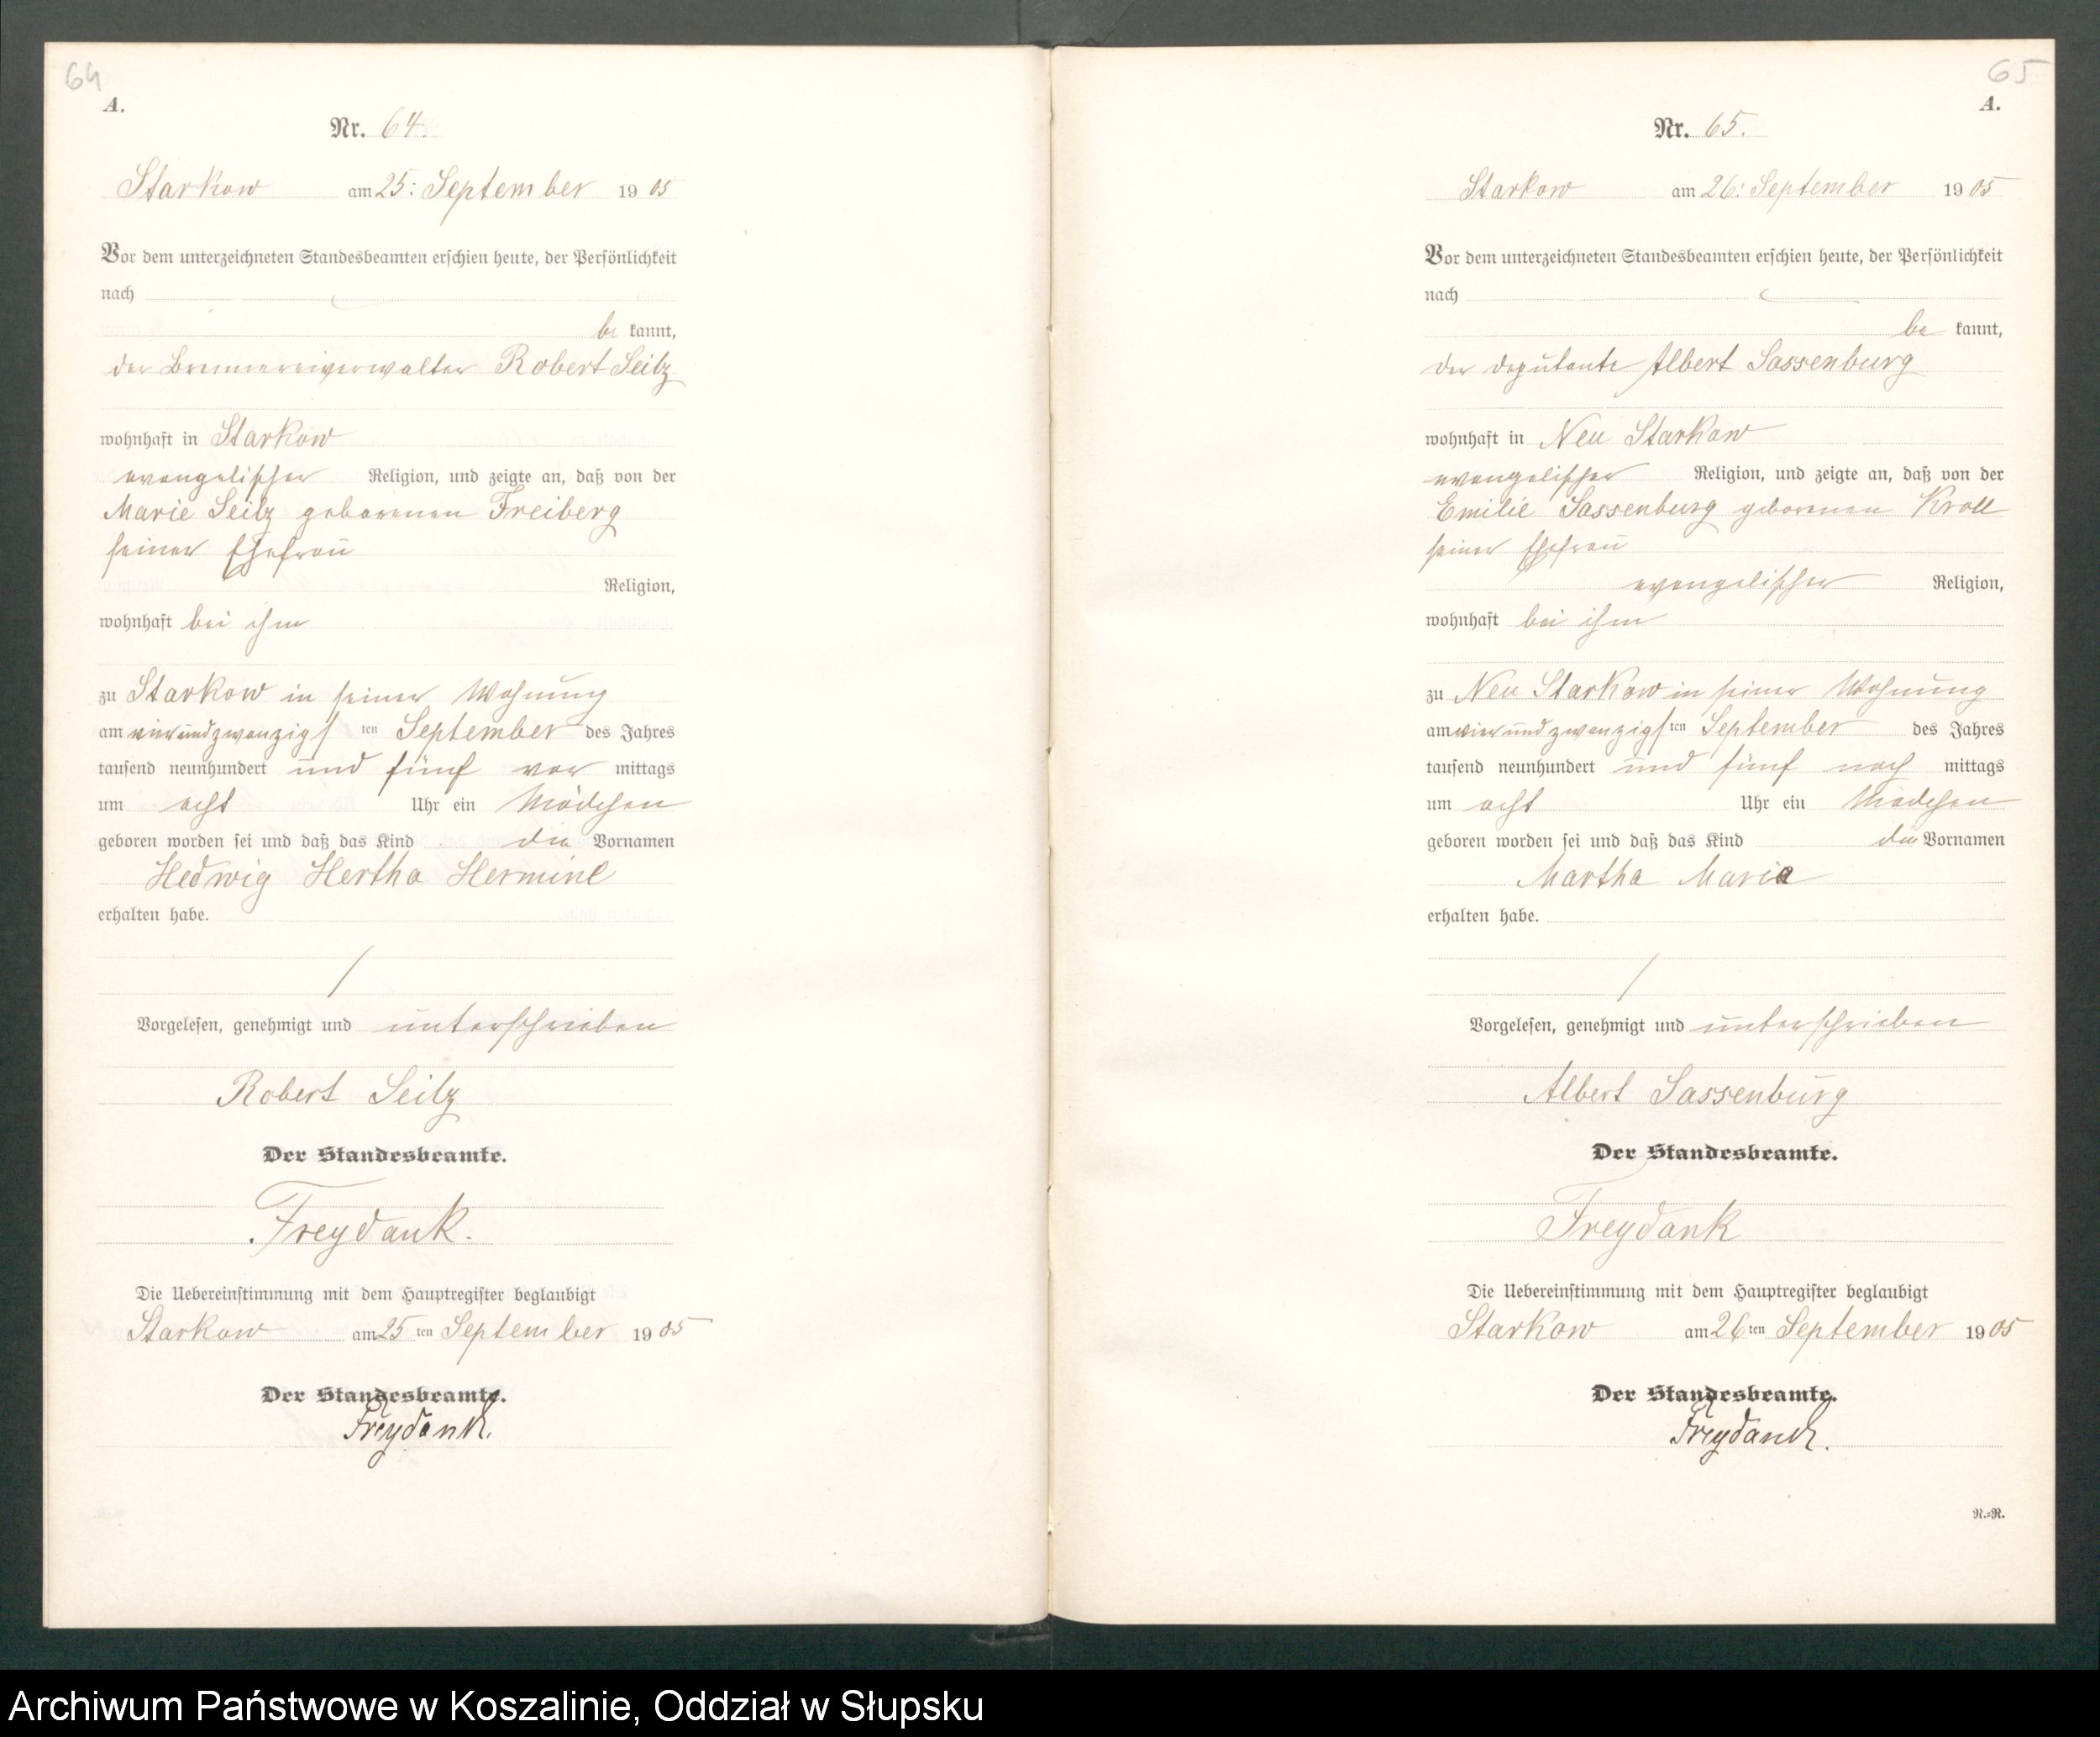 64
A.
Nr. 64.
Starkow am 25: September 1905
Vor dem unterzeichneten Standesbeamten erschien heute, der Persönlichkeit
nach
be kannt,
der Brennereiverwalter Robert Seitz
wohnhaft in Starkow
evangelischer Religion, und zeigte an, daß von der
Marie Seitz geborenen Freiberg
seiner Ehefrau
Religion,
wohnhaft bei ihm
zu Starkow in seiner Wohnung
am vierundzwanzigsten September des Jahres
tausend neunhundert und fünf vor mittags
um acht Uhr ein Mädchen
geboren worden sei und daß das Kind die Vornamen
Hedwig Hertha Hermine
erhalten habe.
Vorgelesen, genehmigt und unterschrieben
Robert Seitz
Der Standesbeamte.
Freydank.
Die Uebereinstimmung mit dem Hauptregister beglaubigt
Starkow am 25 ten September 1905
Der Standesbeamte.
Freydank.
65
A.
Nr. 65.
Starkow am 26: September 1905
Vor dem unterzeichneten Standesbeamten erschien heute, der Persönlichkeit
nach
be kannt,
der Deputante Albert Sassenburg
wohnhaft in Neu Starkow
evangelischer Religion, und zeigte an, daß von der
Emilie Sassenburg geborenen Kroll
seiner Ehefrau
evangelischer Religion,
wohnhaft bei ihm
zu Neu Starkow in seiner Wohnung
am vierundzwanzigsten September des Jahres
tausend neunhundert und fünf nach mittags
um acht Uhr ein Mädchen
geboren worden sei und daß das Kind die Vornamen
Martha Maria
erhalten habe.
Vorgelesen, genehmigt und unterschrieben
Albert Sassenburg
Der Standesbeamte.
Freydank
Die Uebereinstimmung mit dem Hauptregister beglaubigt
Starkow am 26 ten September 1905
Der Standesbeamte.
Freydank.
N.=R.
Archiwum Państwowe w Koszalinie, Oddział w Słupsku